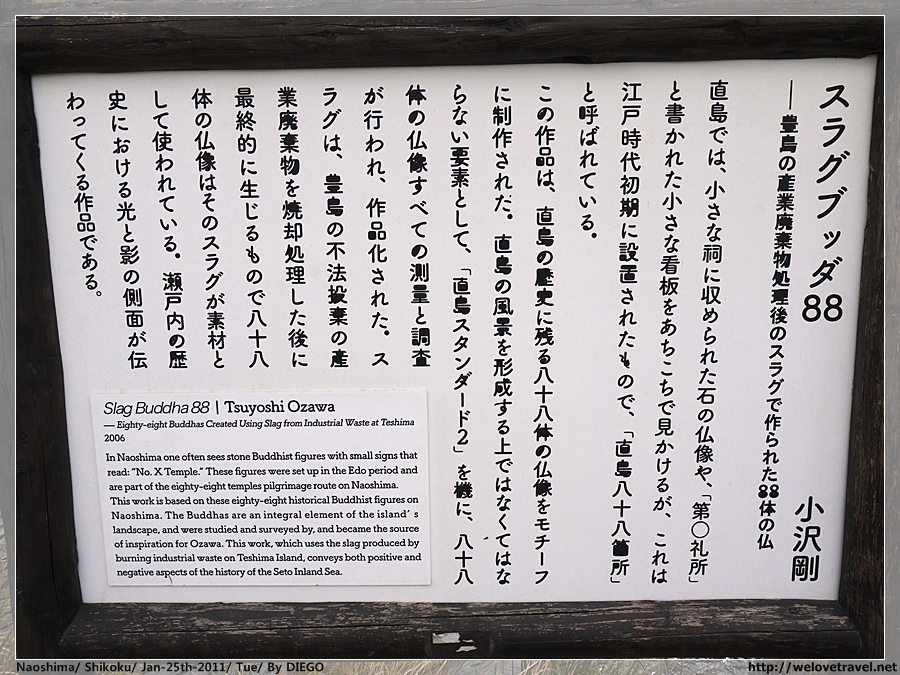 スラグブッダ88
—豊島の産業廃棄物処理後のスラグで作られた88体の仏
小沢剛
直島では、小さな祠に収められた石の仏像や、「第〇札所」
と書かれた小さな看板をあちこちで見かけるが、これは
江戸時代初期に設置されたもので、「直島八十八箇所」
と呼ばれている。
この作品は、直島の歴史に残る八十八体の仏像をモチーフ
に制作された。直島の風景を形成する上ではなくてはな
らない要素として、「直島スタンダード2」を機に、八十八
体の仏像すべての測量と調査
が行われ、作品化された。ス
ラグは、豊島の不法投棄の産
業廃棄物を焼却処理した後に
最終的に生じるもので八十八
体の仏像はそのスラグが素材と
して使われている。瀬戸内の歴
史における光と影の側面が伝
わってくる作品である。
Slag Buddha 88 | Tsuyoshi Ozawa
— Eighty-eight Buddhas Created Using Slag from Industrial Waste at Teshima
2006
In Naoshima one often sees stone Buddhist figures with small signs that
read: “No. X Temple.” These figures were set up in the Edo period and
are part of the eighty-eight temples pilgrimage route on Naoshima.
This work is based on these eighty-eight historical Buddhist figures on
Naoshima. The Buddhas are an integral element of the island’s
landscape, and were studied and surveyed by, and became the source
of inspiration for Ozawa. This work, which uses the slag produced by
burning industrial waste on Teshima Island, conveys both positive and
negative aspects of the history of the Seto Inland Sea.
Naoshima/ Shikoku/ Jan-25th-2011/ Tue/ By DIEGO
http://welovetravel.net